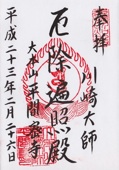 奉拝
川崎大師
厄除遍照殿
大本山平間寺
平成二十三年二月二十六日